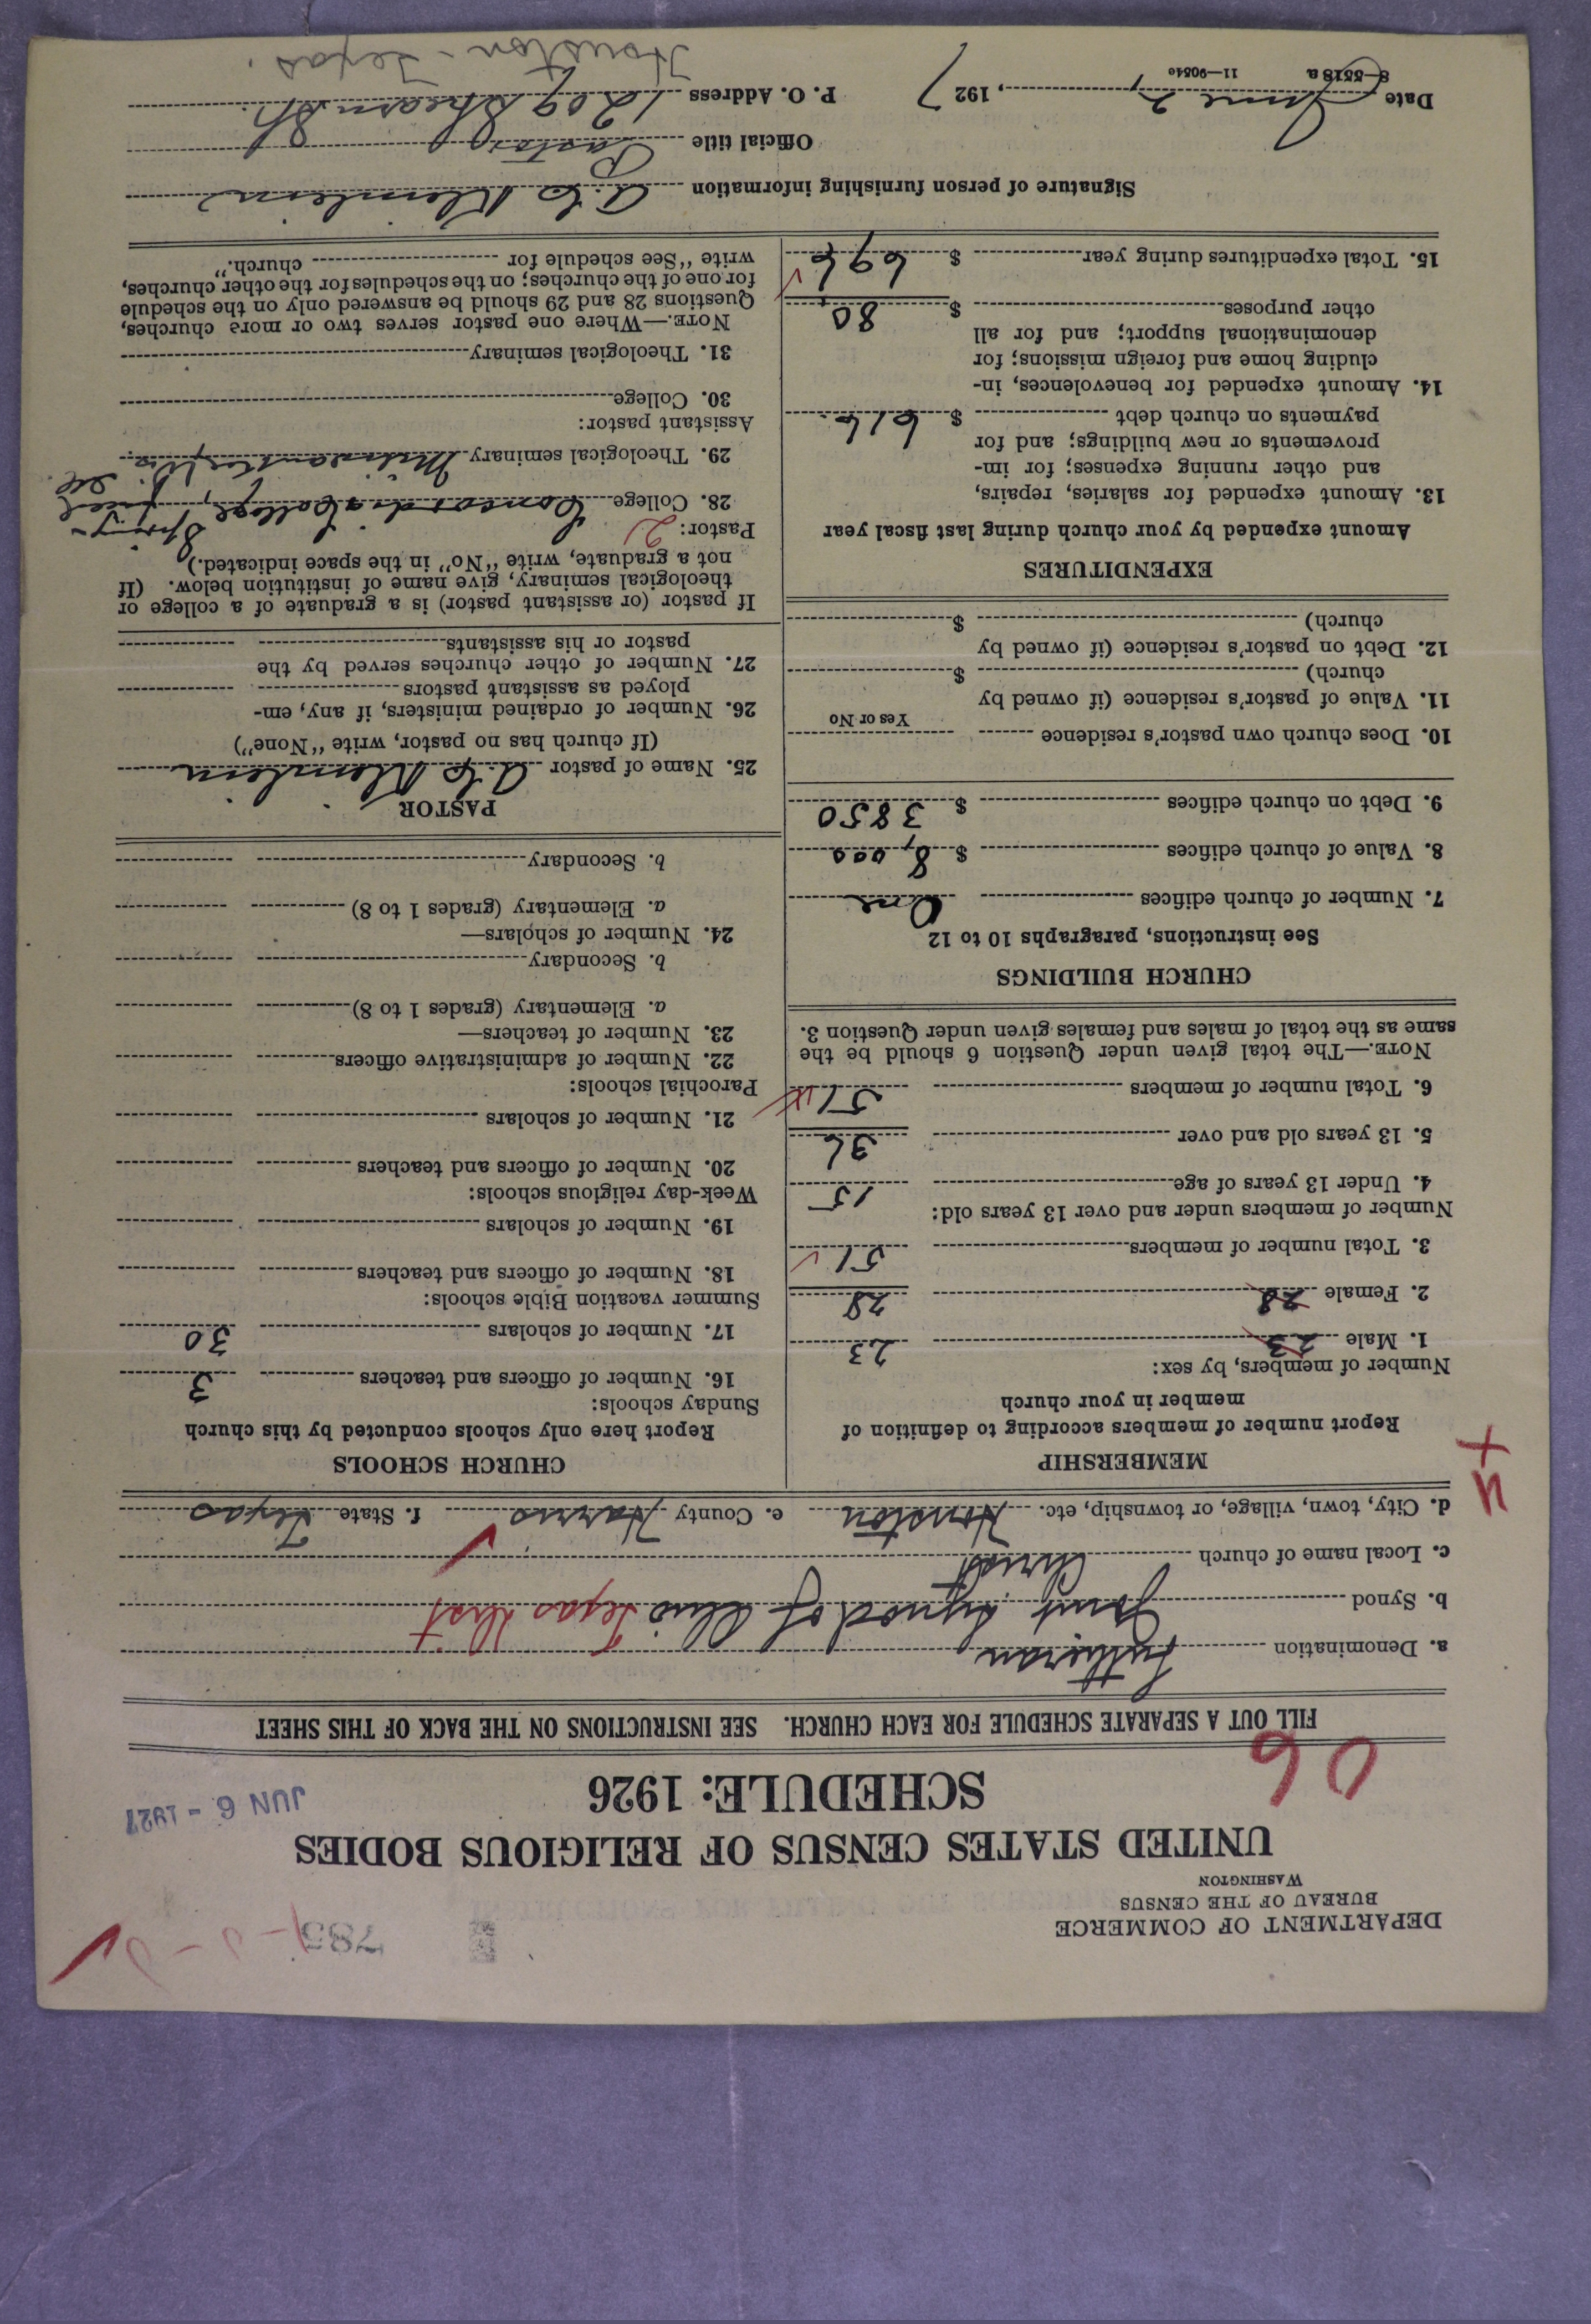 785
DEPARTMENT OF COMMERCE
BUREAU OF THE CENSUS
WASHINGTON
UNITED STATES CENSUS OF RELIGIOUS BODIES
SCHEDULE: 1926
JUN 6 - 1927
06
FILL OUT A SEPARATE SCHEDULE FOR EACH CHURCH. SEE INSTRUCTIONS ON THE BACK OF THIS SHEET
a. Denomination Lutheran
b. Synod Joint Synod of Ohio Texas Dist
c. Local name of church Christ
d. City, town, village, or township, etc. Houston e. County Harris f. State Texas
MEMBERSHIP
Report number of members according to definition of
member in your church
Number of members, by sex:
1. Male 23 23
2. Female 28 28
3. Total number of members 51
Number of members under and over 13 years old:
4. Under 13 years of age 15
5. 13 years old and over 36
6. Total number of members 51
NOTE.—The total given under Question 6 should be the
same as the total of males and females given under Question 3.
CHURCH BUILDINGS
See instructions, paragraphs 10 to 12
7. Number of church edifices One
8. Value of church edifices $ 8,000
9. Debt on church edifices $ 3850
10. Does church own pastor's residence
Yes or No
11. Value of pastor's residence (if owned by
church) $
12. Debt on pastor's residence (if owned by
church) $
EXPENDITURES
Amount expended by your church during last fiscal year
13. Amount expended for salaries, repairs,
and other running expenses; for im-
provements or new buildings; and for
payments on church debt $ 616.
14. Amount expended for benevolences, in-
cluding home and foreign missions; for
denominational support; and for all
other purposes $ 80
15. Total expenditures during year $ 696
CHURCH SCHOOLS
Report here only schools conducted by this church
Sunday schools:
16. Number of officers and teachers 3
17. Number of scholars 30
Summer vacation Bible schools:
18. Number of officers and teachers
19. Number of scholars
Week-day religious schools:
20. Number of officers and teachers
21. Number of scholars
Parochial schools:
22. Number of administrative officers
23. Number of teachers—
a. Elementary (grades 1 to 8)
b. Secondary
24. Number of scholars—
a. Elementary (grades 1 to 8)
b. Secondary
PASTOR
25. Name of pastor
(If church has no pastor, write "None")
26. Number of ordained ministers, if any, em-
ployed as assistant pastors
27. Number of other churches served by the
pastor or his assistants
If pastor (or assistant pastor) is a graduate of a college or
theological seminary, give name of institution below. (If
not a graduate, write "No" in the space indicated.)
Pastor: 2
28. College Concordia College, Spring-
field Ill
29. Theological seminary
Assistant pastor:
30. College
31. Theological seminary
NOTE.—Where one pastor serves two or more churches,
Questions 28 and 29 should be answered only on the schedule
for one of the churches; on the schedules for the other churches,
write "See schedule for church."
Signature of person furnishing information
Official title Pastor
Date June 2, 1927 P. O. Address 1209 Shearn St.
8—5518a 11—9054c Houston - Texas.